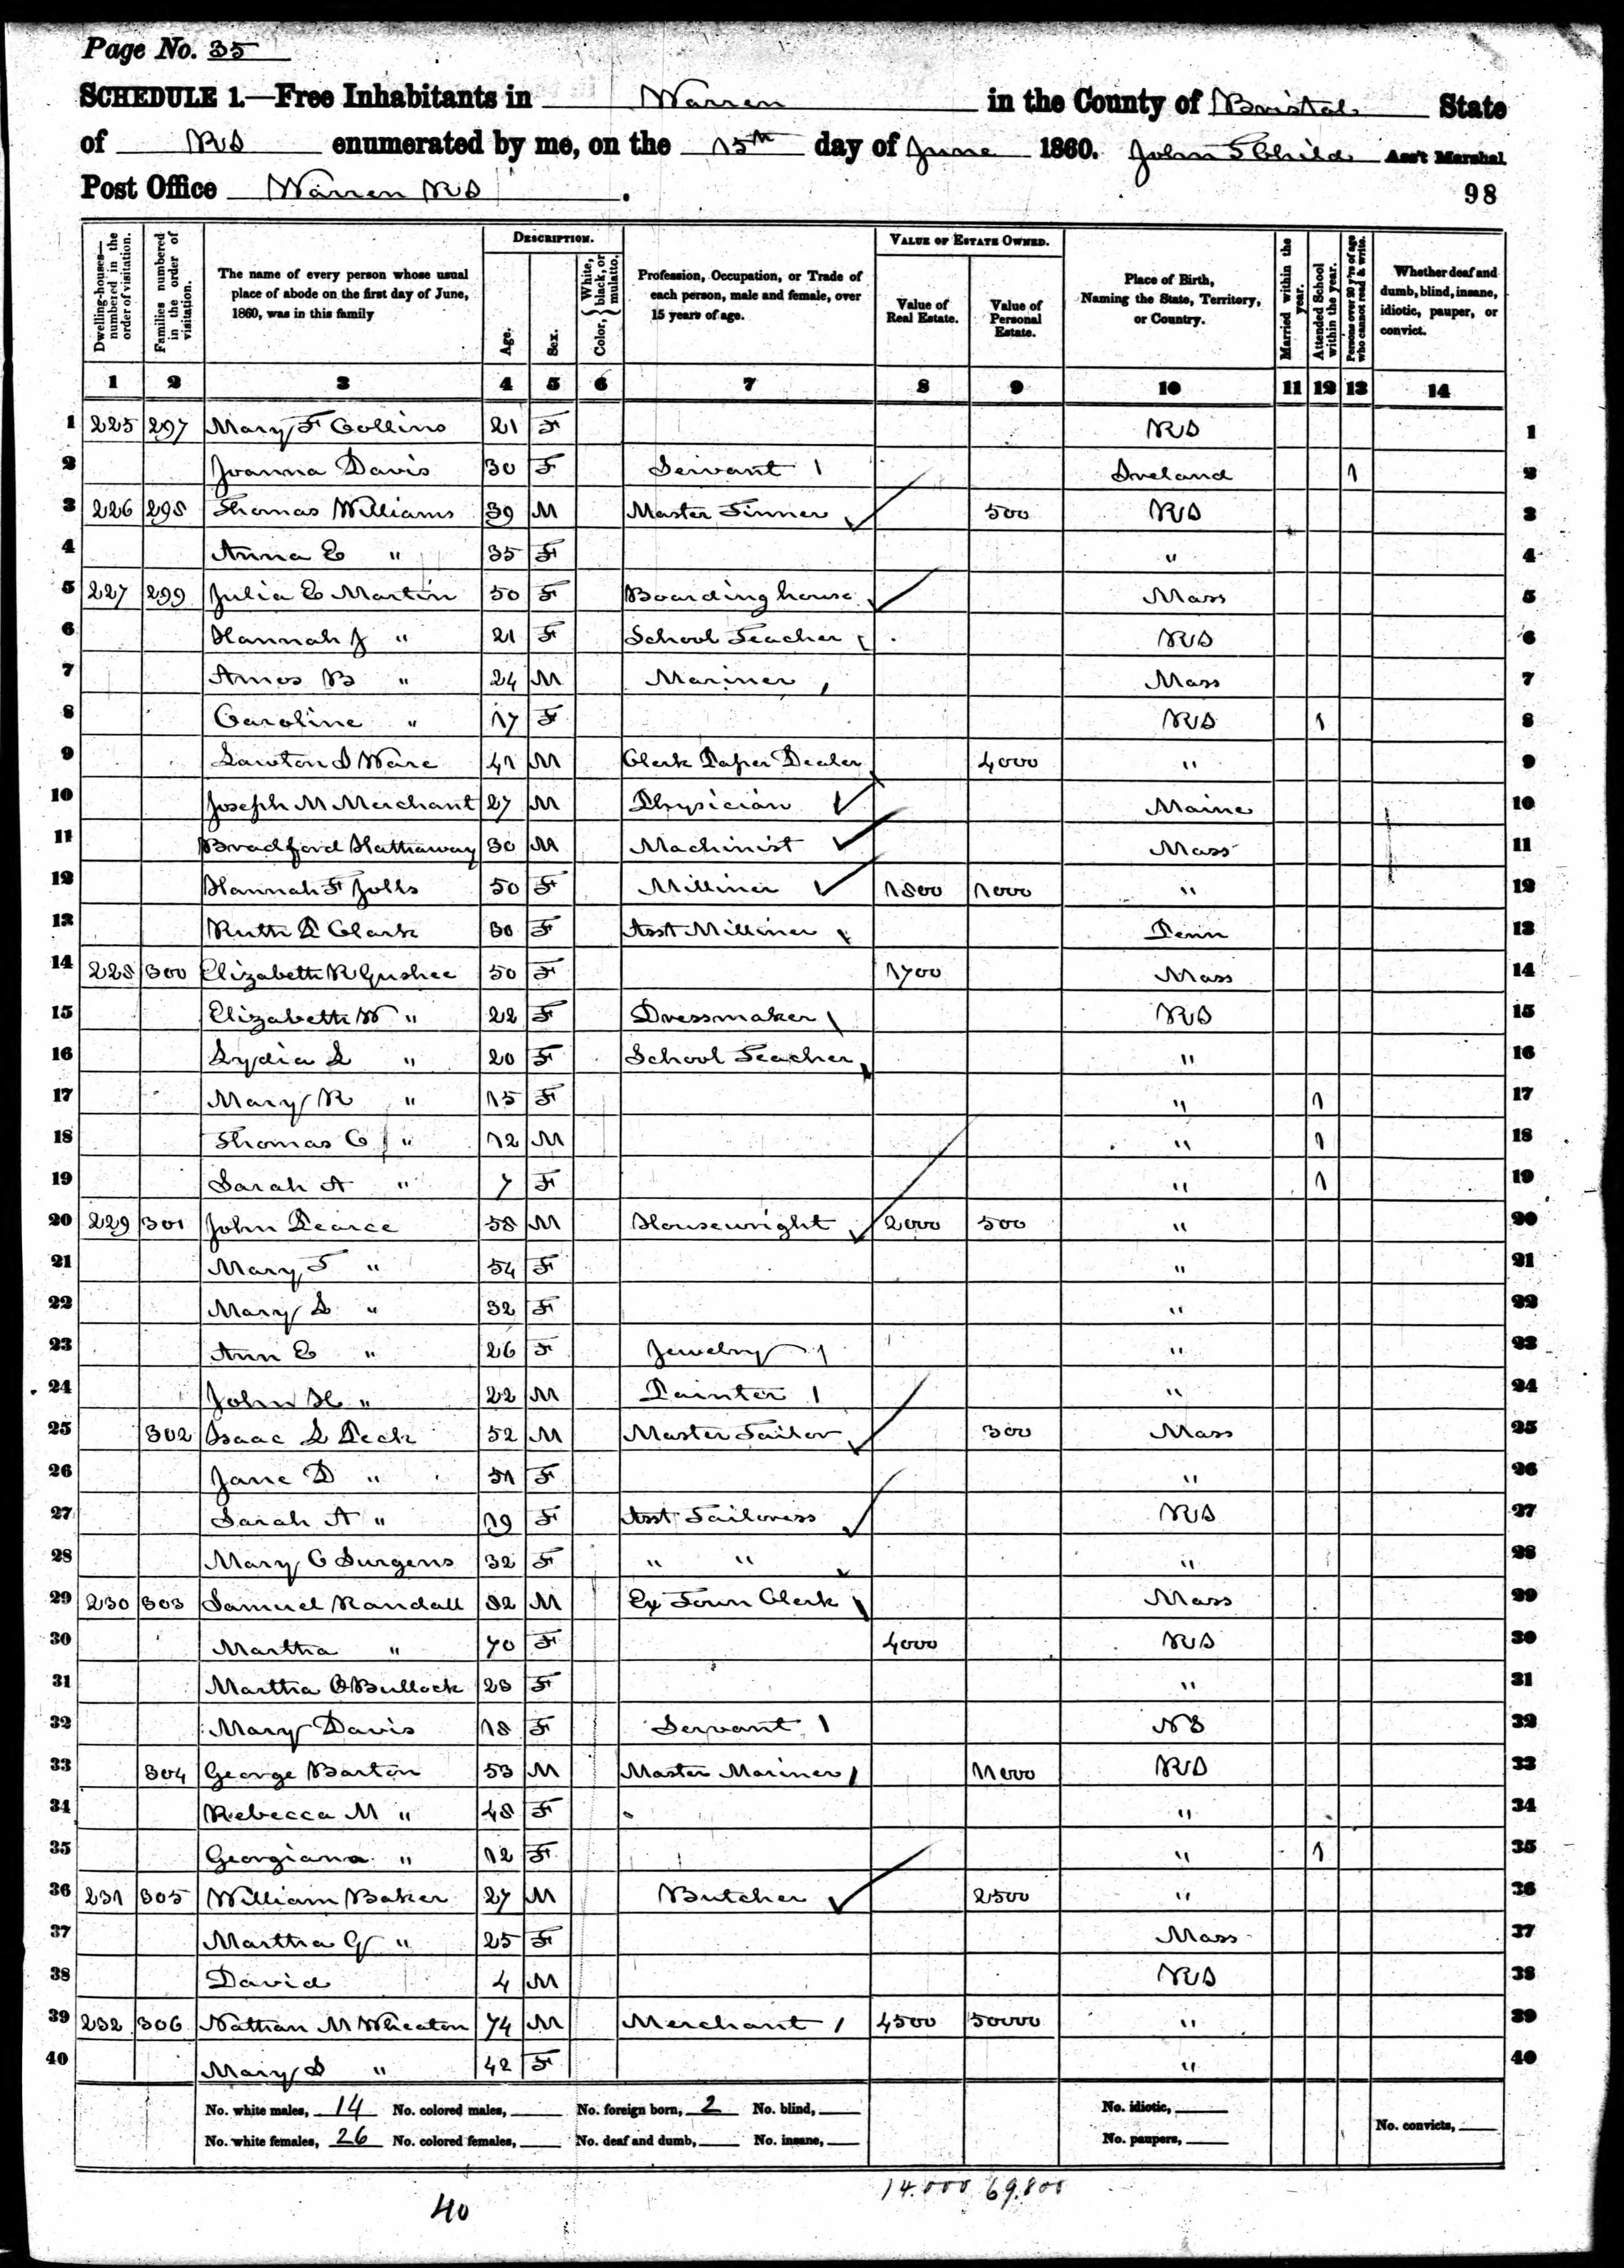 Page No. 35
SCHEDULE 1.—Free Inhabitants in Warren in the County of Bristol State
of RI enumerated by me, on the 15th day of June 1860. John T Child Ass't Marshal
Post Office Warren RI. 98
DESCRIPTION. VALUE OF ESTATE OWNED.
Dwelling-houses—numbered in the order of visitation. Families numbered in the order of visitation. The name of every person whose usual place of abode on the first day of June, 1860, was in this family Age. Sex. Color, { White, black, or mulatto. Profession, Occupation, or Trade of each person, male and female, over 15 years of age. Value of Real Estate. Value of Personal Estate. Place of Birth, Naming the State, Territory, or Country. Married within the year. Attended School within the year. Persons over 20 y'rs of age who cannot read & write. Whether deaf and dumb, blind, insane, idiotic, pauper, or convict.
1 2 3 4 5 6 7 8 9 10 11 12 13 14
1 225 297 Mary F Collins 21 F RI 1
2 Joanna Davis 30 F Servant 1 Ireland 1 2
3 226 298 Thomas Williams 39 M Master Tinner 500 RI 3
4 Anna E " 35 F " 4
5 227 299 Julia E Martin 50 F Boarding house Mass 5
6 Hannah J " 21 F School Teacher RI 6
7 Amos B " 24 M Mariner Mass 7
8 Caroline " 17 F RI 1 8
9 Lawton I Ware 41 M Clerk Paper Dealer 4000 " 9
10 Joseph M Merchant 27 M Physician Maine 10
11 Bradford Hathaway 30 M Machinist Mass 11
12 Hannah F Jolls 50 F Milliner 1800 1000 " 12
13 Ruth P Clark 30 F Asst Milliner Penn 13
14 228 300 Elizabeth R Gushee 50 F 1700 Mass 14
15 Elizabeth W " 22 F Dressmaker RI 15
16 Lydia L " 20 F School Teacher " 16
17 Mary R " 15 F " 1 17
18 Thomas C " 12 M " 1 18
19 Sarah A " 7 F " 1 19
20 229 301 John Pearce 58 M Housewright 2000 500 " 20
21 Mary T " 54 F " 21
22 Mary L " 32 F " 22
23 Ann E " 26 F Jewelry 1 " 23
24 John H " 22 M Painter 1 " 24
25 302 Isaac L Peck 52 M Master Tailor 300 Mass 25
26 Jane D " 51 F " 26
27 Sarah A " 19 F Asst Tailoress RI 27
28 Mary C Surgens 32 F " " " 28
29 230 303 Samuel Randall 82 M Ex Town Clerk Mass 29
30 Martha " 70 F 4000 RI 30
31 Martha B Bullock 23 F " 31
32 Mary Davis 18 F Servant 1 NB 32
33 304 George Barton 53 M Master Mariner 11000 RI 33
34 Rebecca M " 48 F " 34
35 Georgiana " 12 F " 1 35
36 231 305 William Baker 27 M Butcher 2500 " 36
37 Martha G " 25 F Mass 37
38 David 4 M RI 38
39 232 306 Nathan M Wheaton 74 M Merchant 4500 50000 " 39
40 Mary S " 42 F " 40
No. white males, 14 No. colored males, No. foreign born, 2 No. blind, No. idiotic,
No. white females, 26 No. colored females, No. deaf and dumb, No. insane, No. paupers, No. convicts,
14.000 69.800
40